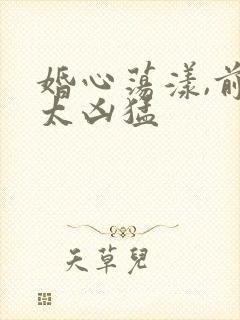 婚心荡漾,前
太凶猛
天草兒